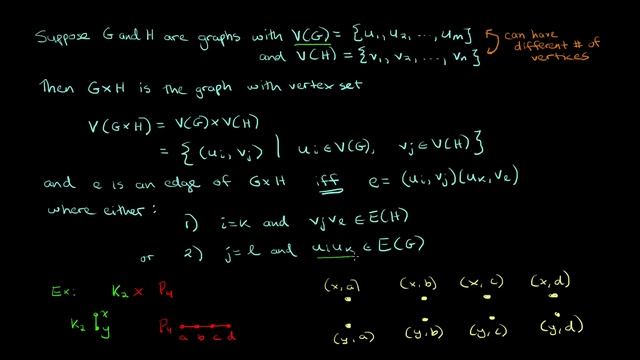 Suppose G and H are graphs with V(G) = {u₁, u₂, ..., uₘ}
and V(H) = {v₁, v₂, ..., vₙ}
can have
different # of
vertices
Then G×H is the graph with vertex set
V(G×H) = V(G)×V(H)
= { (uᵢ, vⱼ) | uᵢ ∈ V(G), vⱼ ∈ V(H) }
and e is an edge of G×H iff e = (uᵢ, vⱼ)(uₖ, vₗ)
where either:
1) i=k and vⱼvₗ ∈ E(H)
or 2) j=l and uᵢuₖ ∈ E(G)
Ex: K₂ × P₄
K₂ x y
P₄ a b c d
(x,a) (x,b) (x,c) (x,d)
(y,a) (y,b) (y,c) (y,d)